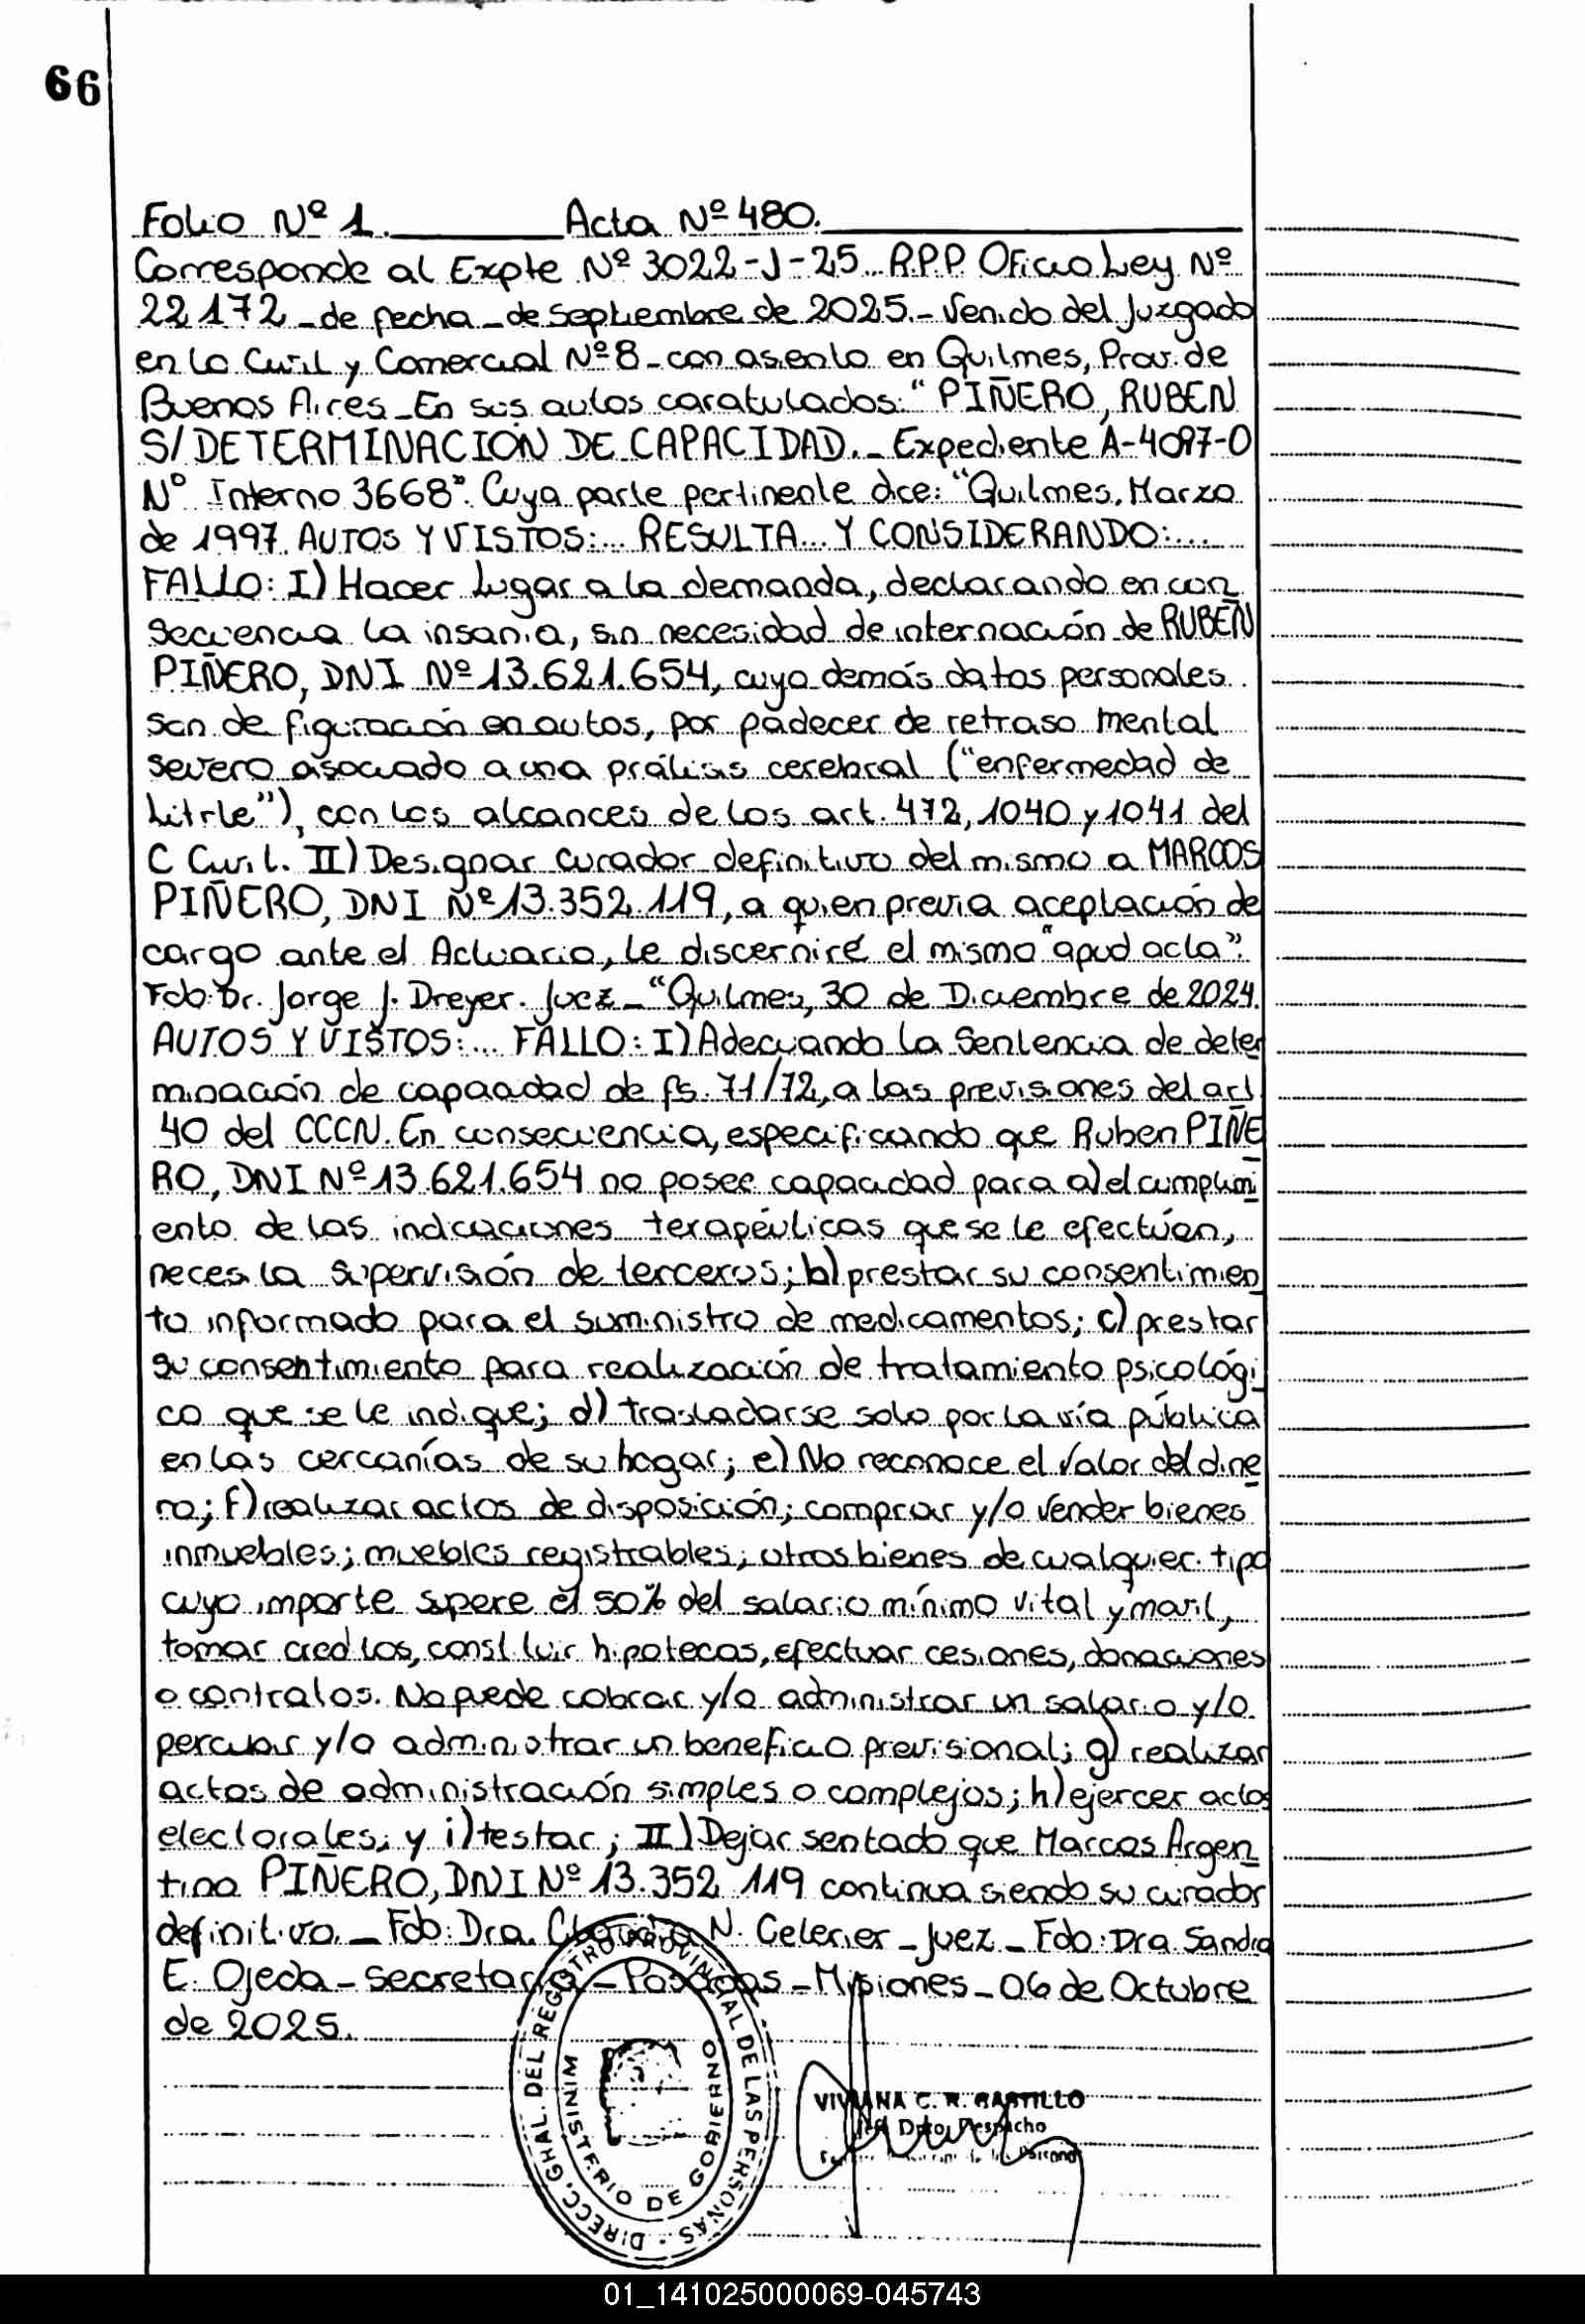 66
Folio Nº 1. Acta Nº 480.
Corresponde al Expte Nº 3022-J-25 R.P.P. Oficio Ley Nº
22172 - de fecha - de Septiembre de 2025.- Venido del Juzgado
en lo Civil y Comercial Nº 8 - con asiento en Quilmes, Prov. de
Buenos Aires - En sus autos caratulados: "PIÑERO, RUBEN
S/DETERMINACION DE CAPACIDAD.- Expediente A-4097-0
N° Interno 3668". Cuya parte pertinente dice: "Quilmes, Marzo
de 1997. AUTOS Y VISTOS:... RESULTA... Y CONSIDERANDO:...
FALLO: I) Hacer lugar a la demanda, declarando en con
secuencia la insania, sin necesidad de internación de RUBEN
PIÑERO, DNI Nº 13.621.654, cuyo demás datos personales
son de figuración en autos, por padecer de retraso mental
severo asociado a una prálisis cerebral ("enfermedad de
Litrle"), con los alcances de los art. 472, 1040 y 1041 del
C Civil. II) Designar curador definitivo del mismo a MARCOS
PIÑERO, DNI Nº 13.352.119, a quien previa aceptación de
cargo ante el Actuario, le discerniré el mismo "apud acta".
Fdo: Dr. Jorge J. Dreyer. Juez - "Quilmes, 30 de Diciembre de 2024.
AUTOS Y VISTOS:... FALLO: I) Adecuando la Sentencia de deter
minación de capacidad de fs. 71/72, a las previsiones del art
40 del CCCN. En consecuencia, especificando que Ruben PIÑE
RO, DNI Nº 13.621.654 no posee capacidad para a) el cumplimi
ento de las indicaciones terapéuticas que se le efectúen,
necesita supervisión de terceros; b) prestar su consentimien
to informado para el suministro de medicamentos; c) prestar
su consentimiento para realización de tratamiento psicológi
co que se le indique; d) trasladarse solo por la vía pública
en las cercanías de su hogar; e) No reconoce el valor del dine
ro; f) realizar actos de disposición; comprar y/o vender bienes
inmuebles; muebles registrables; otros bienes de cualquier tipo
cuyo importe supere el 50% del salario mínimo vital y movil,
tomar creditos, constituir hipotecas, efectuar cesiones, donaciones
o contratos. No puede cobrar y/o administrar un salario y/o
percibir y/o administrar un beneficio previsional; g) realizar
actos de administración simples o complejos; h) ejercer actos
electorales; y i) testar; II) Dejar sentado que Marcos Argen
tino PIÑERO, DNI Nº 13.352 119 continua siendo su curador
definitivo. - Fdo: Dra. Claudia N. Celerier - Juez - Fdo: Dra Sandra
E. Ojeda - Secretaria - Posadas - Misiones - 06 de Octubre
de 2025.
DIRECC. GRAL. DEL REGISTRO PROVINCIAL DE LAS PERSONAS
MINISTERIO DE GOBIERNO
VIVIANA C. R. CASTILLO
Jefa Dpto. Despacho
01_141025000069-045743